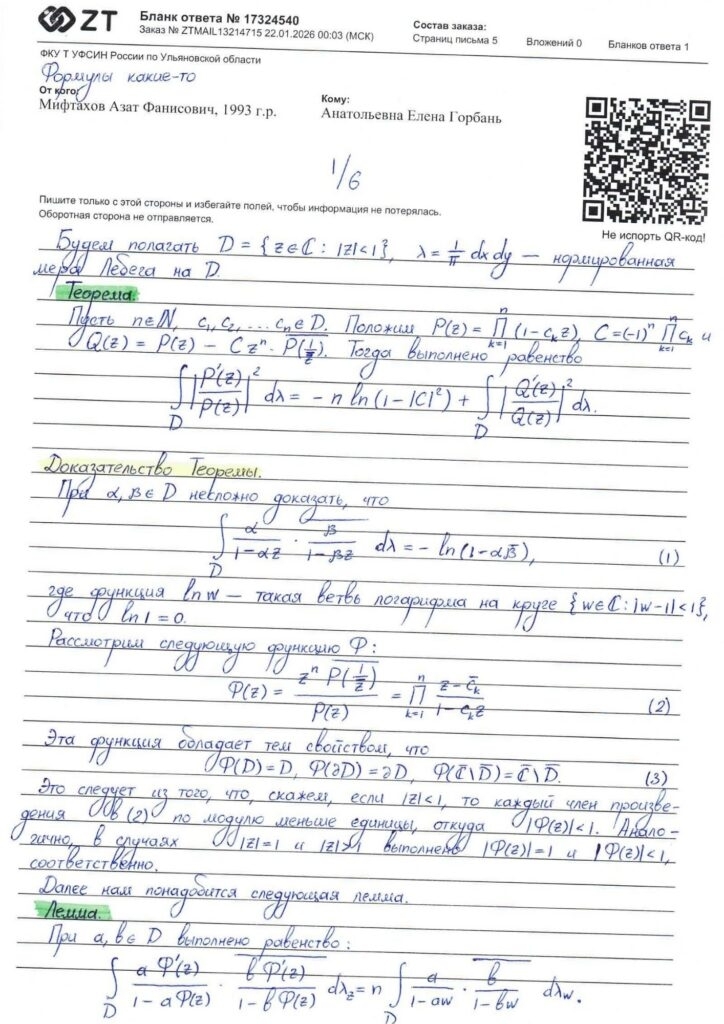 ZT
Бланк ответа № 17324540
Заказ № ZTMAIL13214715 22.01.2026 00:03 (МСК)
Состав заказа:
Страниц письма 5 Вложений 0 Бланков ответа 1
ФКУ Т УФСИН России по Ульяновской области
Формулы какие-то
От кого:
Мифтахов Азат Фанисович, 1993 г.р.
Кому:
Анатольевна Елена Горбань
1/6
Пишите только с этой стороны и избегайте полей, чтобы информация не потерялась.
Оборотная сторона не отправляется.
Не испорть QR-код!
Будем полагать D = {z ∈ ℂ : |z|<1}, λ = 1/π dxdy — нормированная
мера Лебега на D.
Теорема.
Пусть n∈ℕ, c₁, c₂, ... cₙ ∈ D. Положим P(z) = ∏_{k=1}^{n} (1-c_k z), C = (-1)ⁿ ∏_{k=1}^{n} c_k и
Q(z) = P(z) - C zⁿ · \overline{P(1/\bar{z})}. Тогда выполнено равенство
∫_D |P'(z)/P(z)|² dλ = - n ln(1-|C|²) + ∫_D |Q'(z)/Q(z)|² dλ.
Доказательство Теоремы.
При α, β ∈ D несложно доказать, что
∫_D α/(1-αz) · \overline{β/(1-βz)} dλ = - ln(1-α\bar{β}), (1)
где функция ln w — такая ветвь логарифма на круге {w∈ℂ: |w-1|<1},
что ln 1 = 0.
Рассмотрим следующую функцию Φ:
Φ(z) = zⁿ \overline{P(1/\bar{z})} / P(z) = ∏_{k=1}^{n} (z-\bar{c}_k)/(1-c_k z) (2)
Эта функция обладает тем свойством, что
Φ(D) = D, Φ(∂D) = ∂D, Φ(\bar{ℂ}\\bar{D}) = \bar{ℂ}\\bar{D}. (3)
Это следует из того, что, скажем, если |z|<1, то каждый член произве-
дения в (2) по модулю меньше единицы, откуда |Φ(z)|<1. Анало-
гично, в случаях |z|=1 и |z|>1 выполнено |Φ(z)|=1 и |Φ(z)|<1,
соответственно.
Далее нам понадобится следующая лемма.
Лемма.
При a, b ∈ D выполнено равенство:
∫_D aΦ'(z)/(1-aΦ(z)) · \overline{bΦ'(z)/(1-bΦ(z))} dλ_z = n ∫_D a/(1-aw) · \overline{b/(1-bw)} dλ_w.